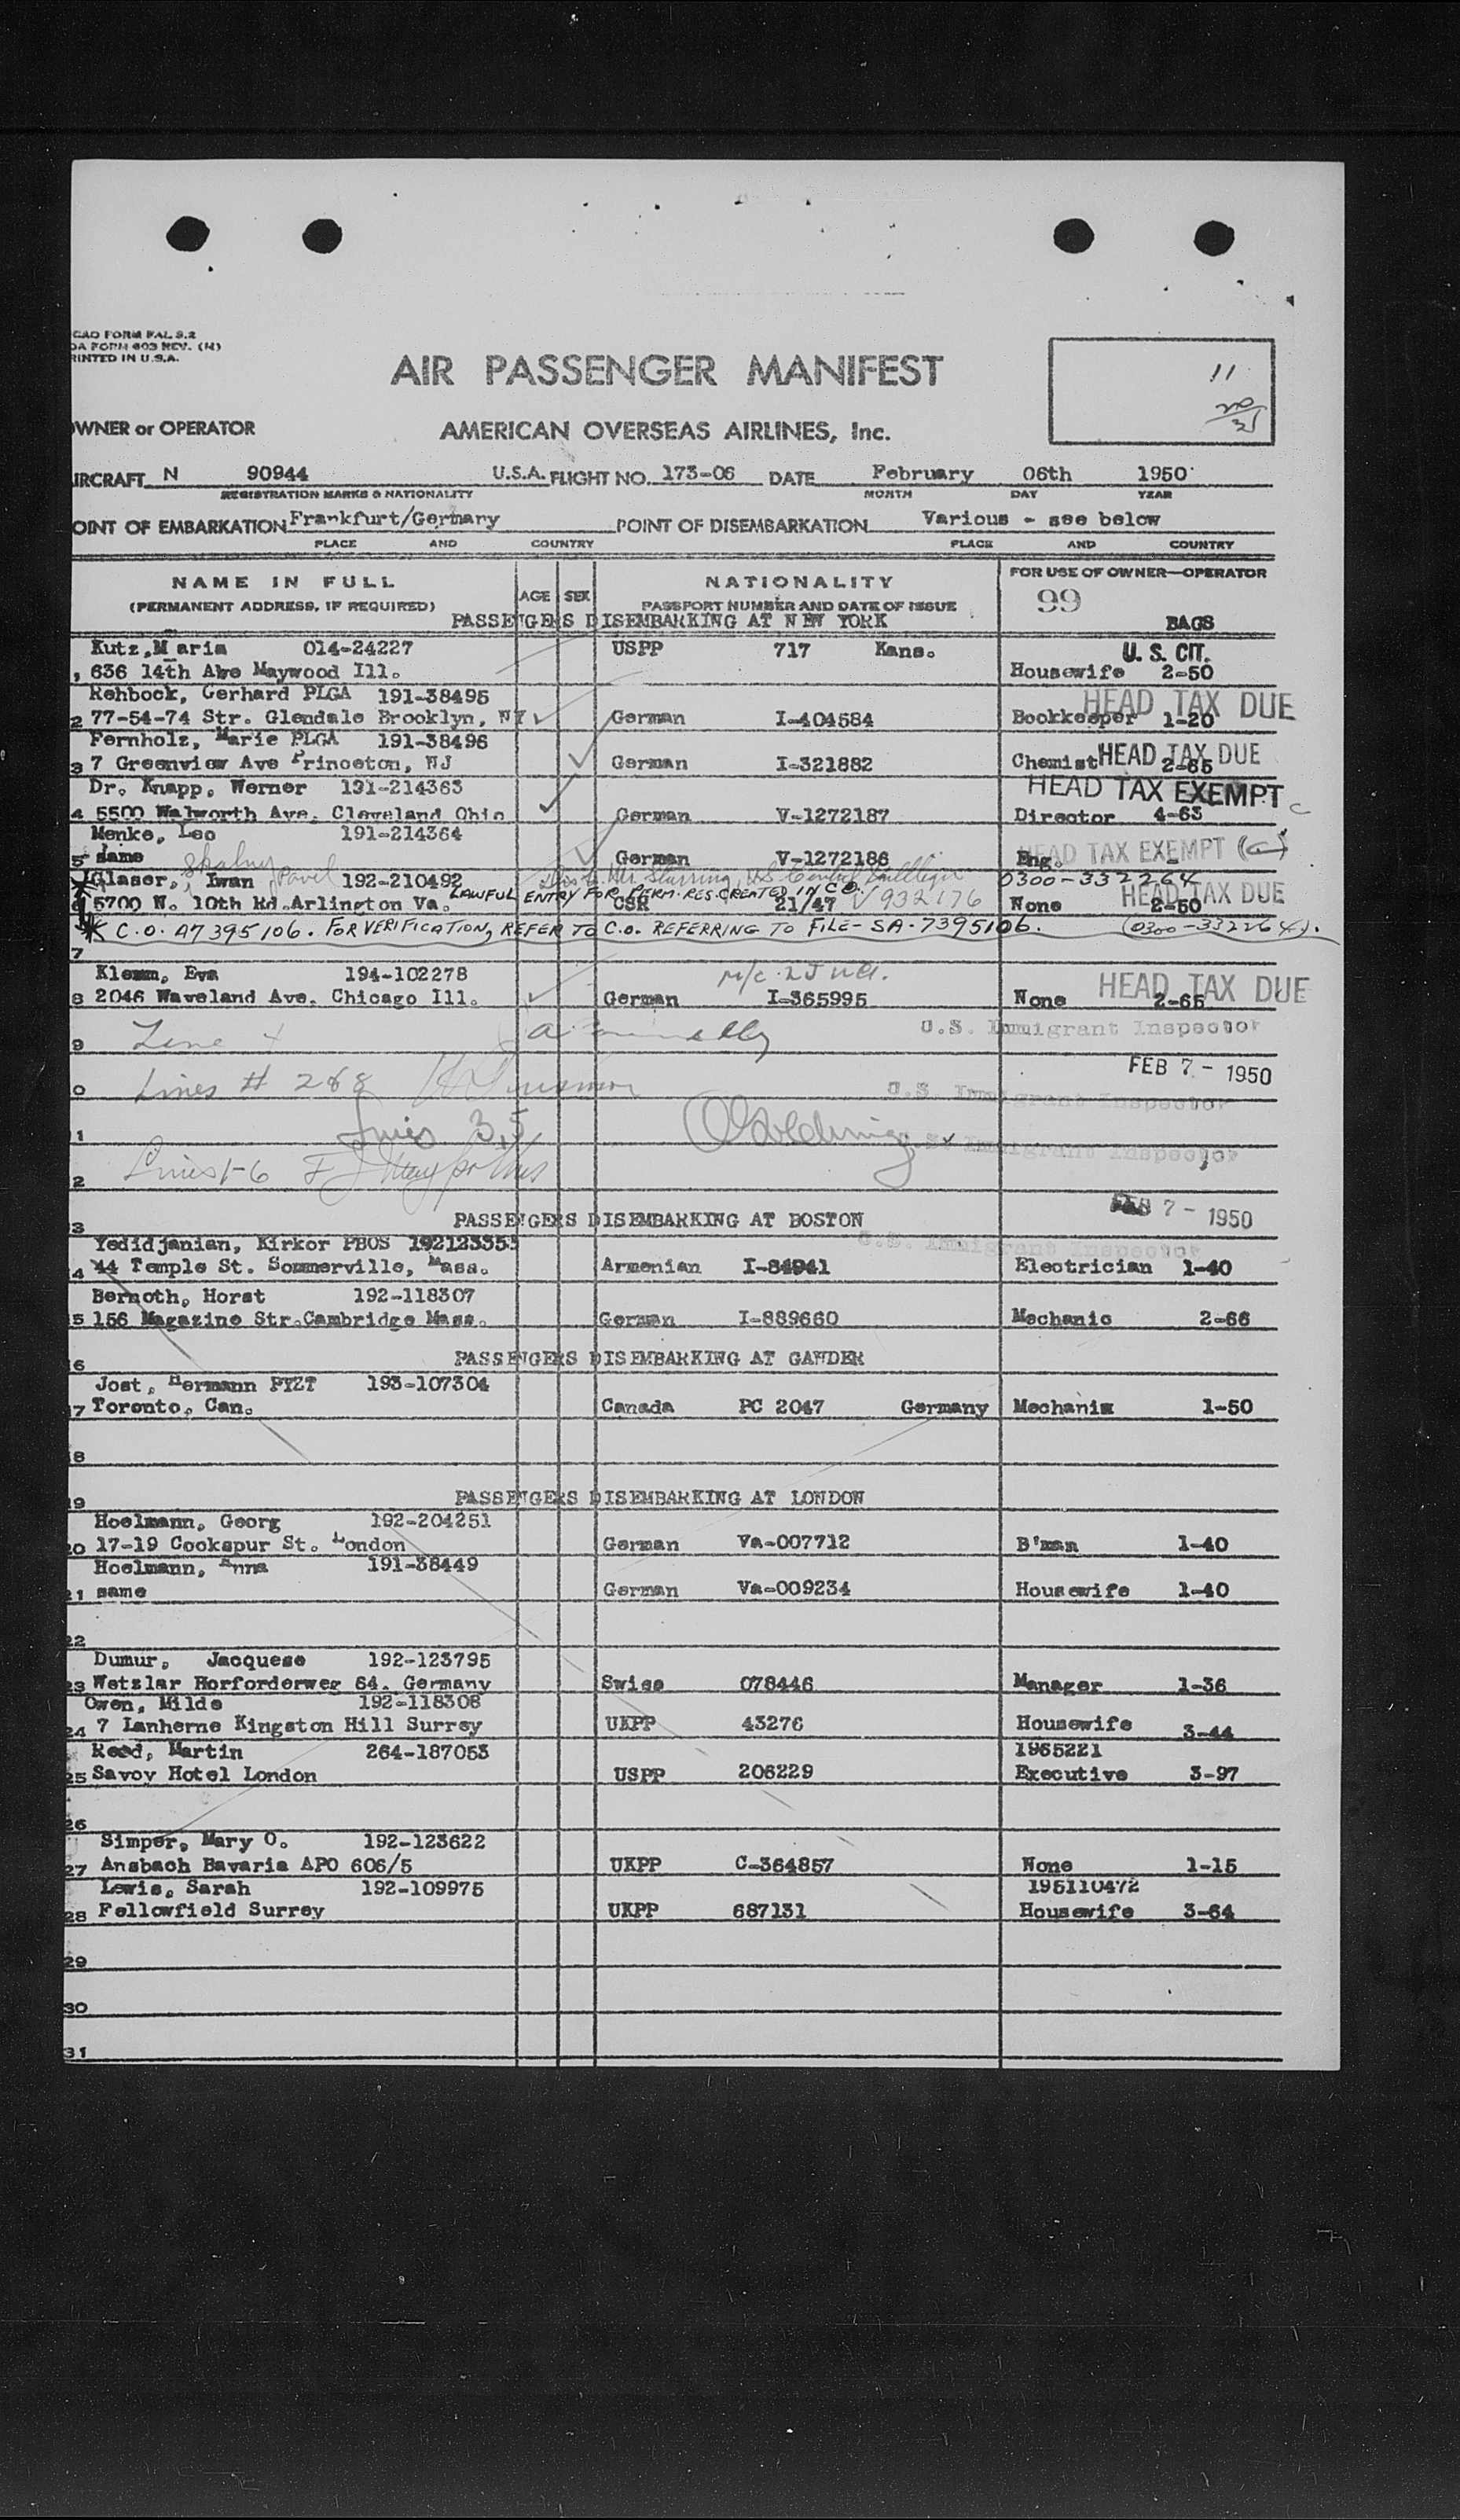 CAO FORM PAL S.2
DA FORM 603 REV. (M)
RINTED IN U.S.A.
AIR PASSENGER MANIFEST
11
OWNER or OPERATOR
AMERICAN OVERSEAS AIRLINES, Inc.
IRCRAFT N 90944 U.S.A. FLIGHT NO. 173-06 DATE February 06th 1950
REGISTRATION MARKS & NATIONALITY MONTH DAY YEAR
OINT OF EMBARKATION Frankfurt/Germany POINT OF DISEMBARKATION Various - see below
PLACE AND COUNTRY PLACE AND COUNTRY
NAME IN FULL AGE SEX NATIONALITY FOR USE OF OWNER—OPERATOR
(PERMANENT ADDRESS, IF REQUIRED) PASSPORT NUMBER AND DATE OF ISSUE 99
PASSENGERS DISEMBARKING AT NEW YORK BAGS
Kutz,Maria 014-24227 USPP 717 Kans. U. S. CIT.
, 636 14th Abe Maywood Ill. Housewife 2-50
Rehbock, Gerhard PLGA 191-38495 HEAD TAX DUE
2 77-54-74 Str. Glendale Brooklyn, NY German I-404584 Bookkeeper 1-20
Fernholz, Marie PLGA 191-38496
3 7 Greenview Ave Princeton, NJ German I-321882 Chemist HEAD TAX DUE 2-65
Dr. Knapp, Werner 191-214363 HEAD TAX EXEMPT
4 5500 Walworth Ave. Cleveland Ohio German V-1272187 Director 4-63
Menke, Leo 191-214364
5 same German V-1272186 Eng. HEAD TAX EXEMPT (C) -
Glaser, Iwan Pavel 192-210492 0300-332264
LAWFUL ENTRY FOR PERM. RES. CREATED IN C.O.
5700 N. 10th Rd.Arlington Va. CSR 21/47 V932176 None HEAD TAX DUE 2-50
* C.O. A7395106. FOR VERIFICATION, REFER TO C.O. REFERRING TO FILE- SA-7395106. (0300-332264).
7
Klemm, Eva 194-102278
8 2046 Waveland Ave. Chicago Ill. German I-365995 None HEAD TAX DUE 2-65
9 Line U.S. Immigrant Inspector
FEB 7 - 1950
0 Lines # 2&8 U.S. Immigrant Inspector
1 Lines 3,5 U.S. Immigrant Inspector
2 Lines 1-6
FEB 7 - 1950
3 PASSENGERS DISEMBARKING AT BOSTON
U.S. Immigrant Inspector
Yedidjanian, Kirkor PBOS 192123353
4 44 Temple St. Sommerville, Mass. Armenian I-84941 Electrician 1-40
Bernoth, Horst 192-118307
5 156 Magazine Str.Cambridge Mass. German I-889660 Mechanic 2-66
6 PASSENGERS DISEMBARKING AT GANDER
Jost, Hermann PYZT 193-107304
17 Toronto, Can. Canada PC 2047 Germany Mechanix 1-50
18
19 PASSENGERS DISEMBARKING AT LONDON
Hoelmann, Georg 192-204251
20 17-19 Cookspur St. London German Va-007712 B'man 1-40
Hoelmann, Anna 191-38449
21 same German Va-009234 Housewife 1-40
22
Dumur, Jacquese 192-123795
23 Wetzlar Horforderweg 64. Germany Swiss 078446 Manager 1-36
Owen, Hilde 192-118308
24 7 Lanherne Kingston Hill Surrey UKPP 43276 Housewife 3-44
Reed, Martin 264-187053 1965221
25 Savoy Hotel London USPP 206229 Executive 3-97
26
Simper, Mary O. 192-123622
27 Ansbach Bavaria APO 606/5 UKPP C-364857 None 1-15
Lewis, Sarah 192-109975 195110472
28 Fellowfield Surrey UKPP 687131 Housewife 3-64
29
30
31